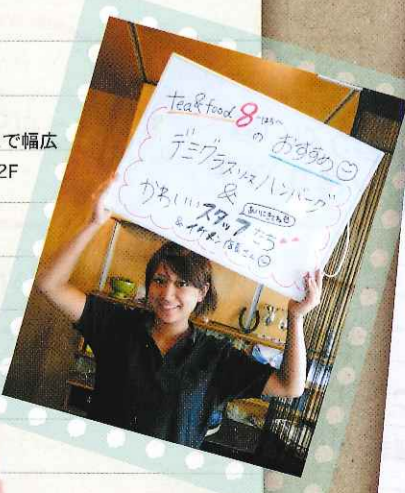 で幅広
2F
tea&food 8 〜はち〜
の おすすめ
デミグラスソースハンバーグ
&
かわいいスタッフたち
&イケメン店長さん